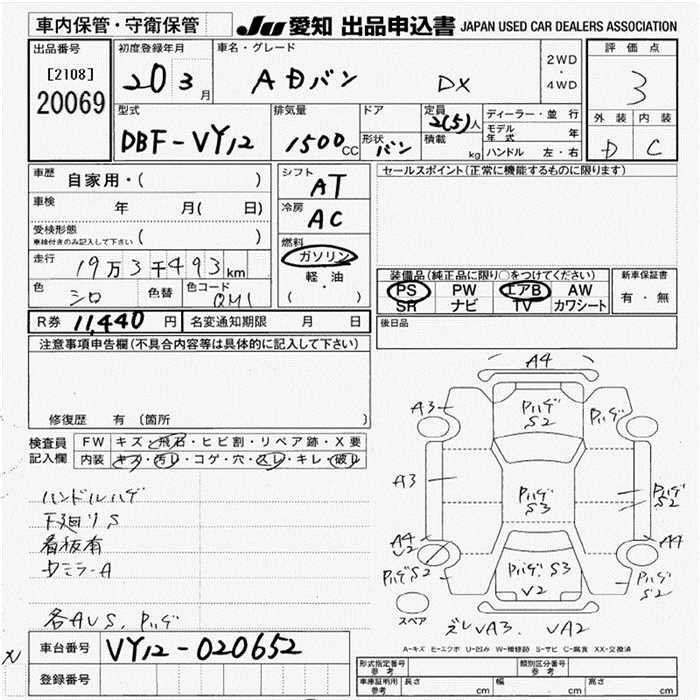 車内保管・守衛保管
JU 愛知 出品申込書 JAPAN USED CAR DEALERS ASSOCIATION
出品番号
[2108]
20069
初度登録年月
20 3 月
車名・グレード
ADバン DX
2WD
・
4WD
評価点
3
外装 内装
D C
型式
DBF-VY12
排気量
1500 CC
ドア
形状 バン
定員 2(5)人
積載 kg
ディーラー・並行
モデル年式 年
ハンドル 左・右
車歴 自家用・( )
車検 年 月( 日)
受検形態
車検付きのみ記入して下さい ( )
走行 19万3千493km
色 シロ 色替 色コード QM1
シフト AT
冷房 AC
燃料
ガソリン
軽・油
( )
セールスポイント(正常に機能するものに限ります)
装備品(純正品に限り○をつけてください)
PS PW エアB AW
SR ナビ TV カワシート
新車保証書
有・無
R券 11,440 円 名変通知期限 月 日
後日品
注意事項申告欄(不具合内容等は具体的に記入して下さい)
修復歴 有(箇所
検査員記入欄
FW キズ・飛石・ヒビ割・リペア跡・X要
内装 キズ・汚れ・コゲ・穴・スレ・キレ・破れ
ハンドルハゲ
下廻りS
看板有
各AUS、Pハゲ
A4
A3
Pハゲ
S2
Pハゲ
A3
Pハゲ
S3
Pハゲ
S2
A4
U2
A4
Pハゲ S2
Pハゲ S3
V2
Pハゲ
S2
スペア
VA3. VA2
A-キズ E-エクボ U-凹み W-補修跡 S-サビ C-腐食 XX-交換済
車台番号 VY12-020652
登録番号
形式指定番号
参考
類別区分番号
参考
車庫証明用
参考
長さ cm 幅 cm 高さ cm